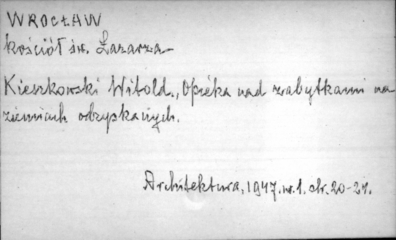 WROCŁAW
kościół św. Łazarza
Kieszkowski Witold, Opieka nad zabytkami na
ziemiach odzyskanych.
Architektura, 1947. nr. 1. str. 20-21.